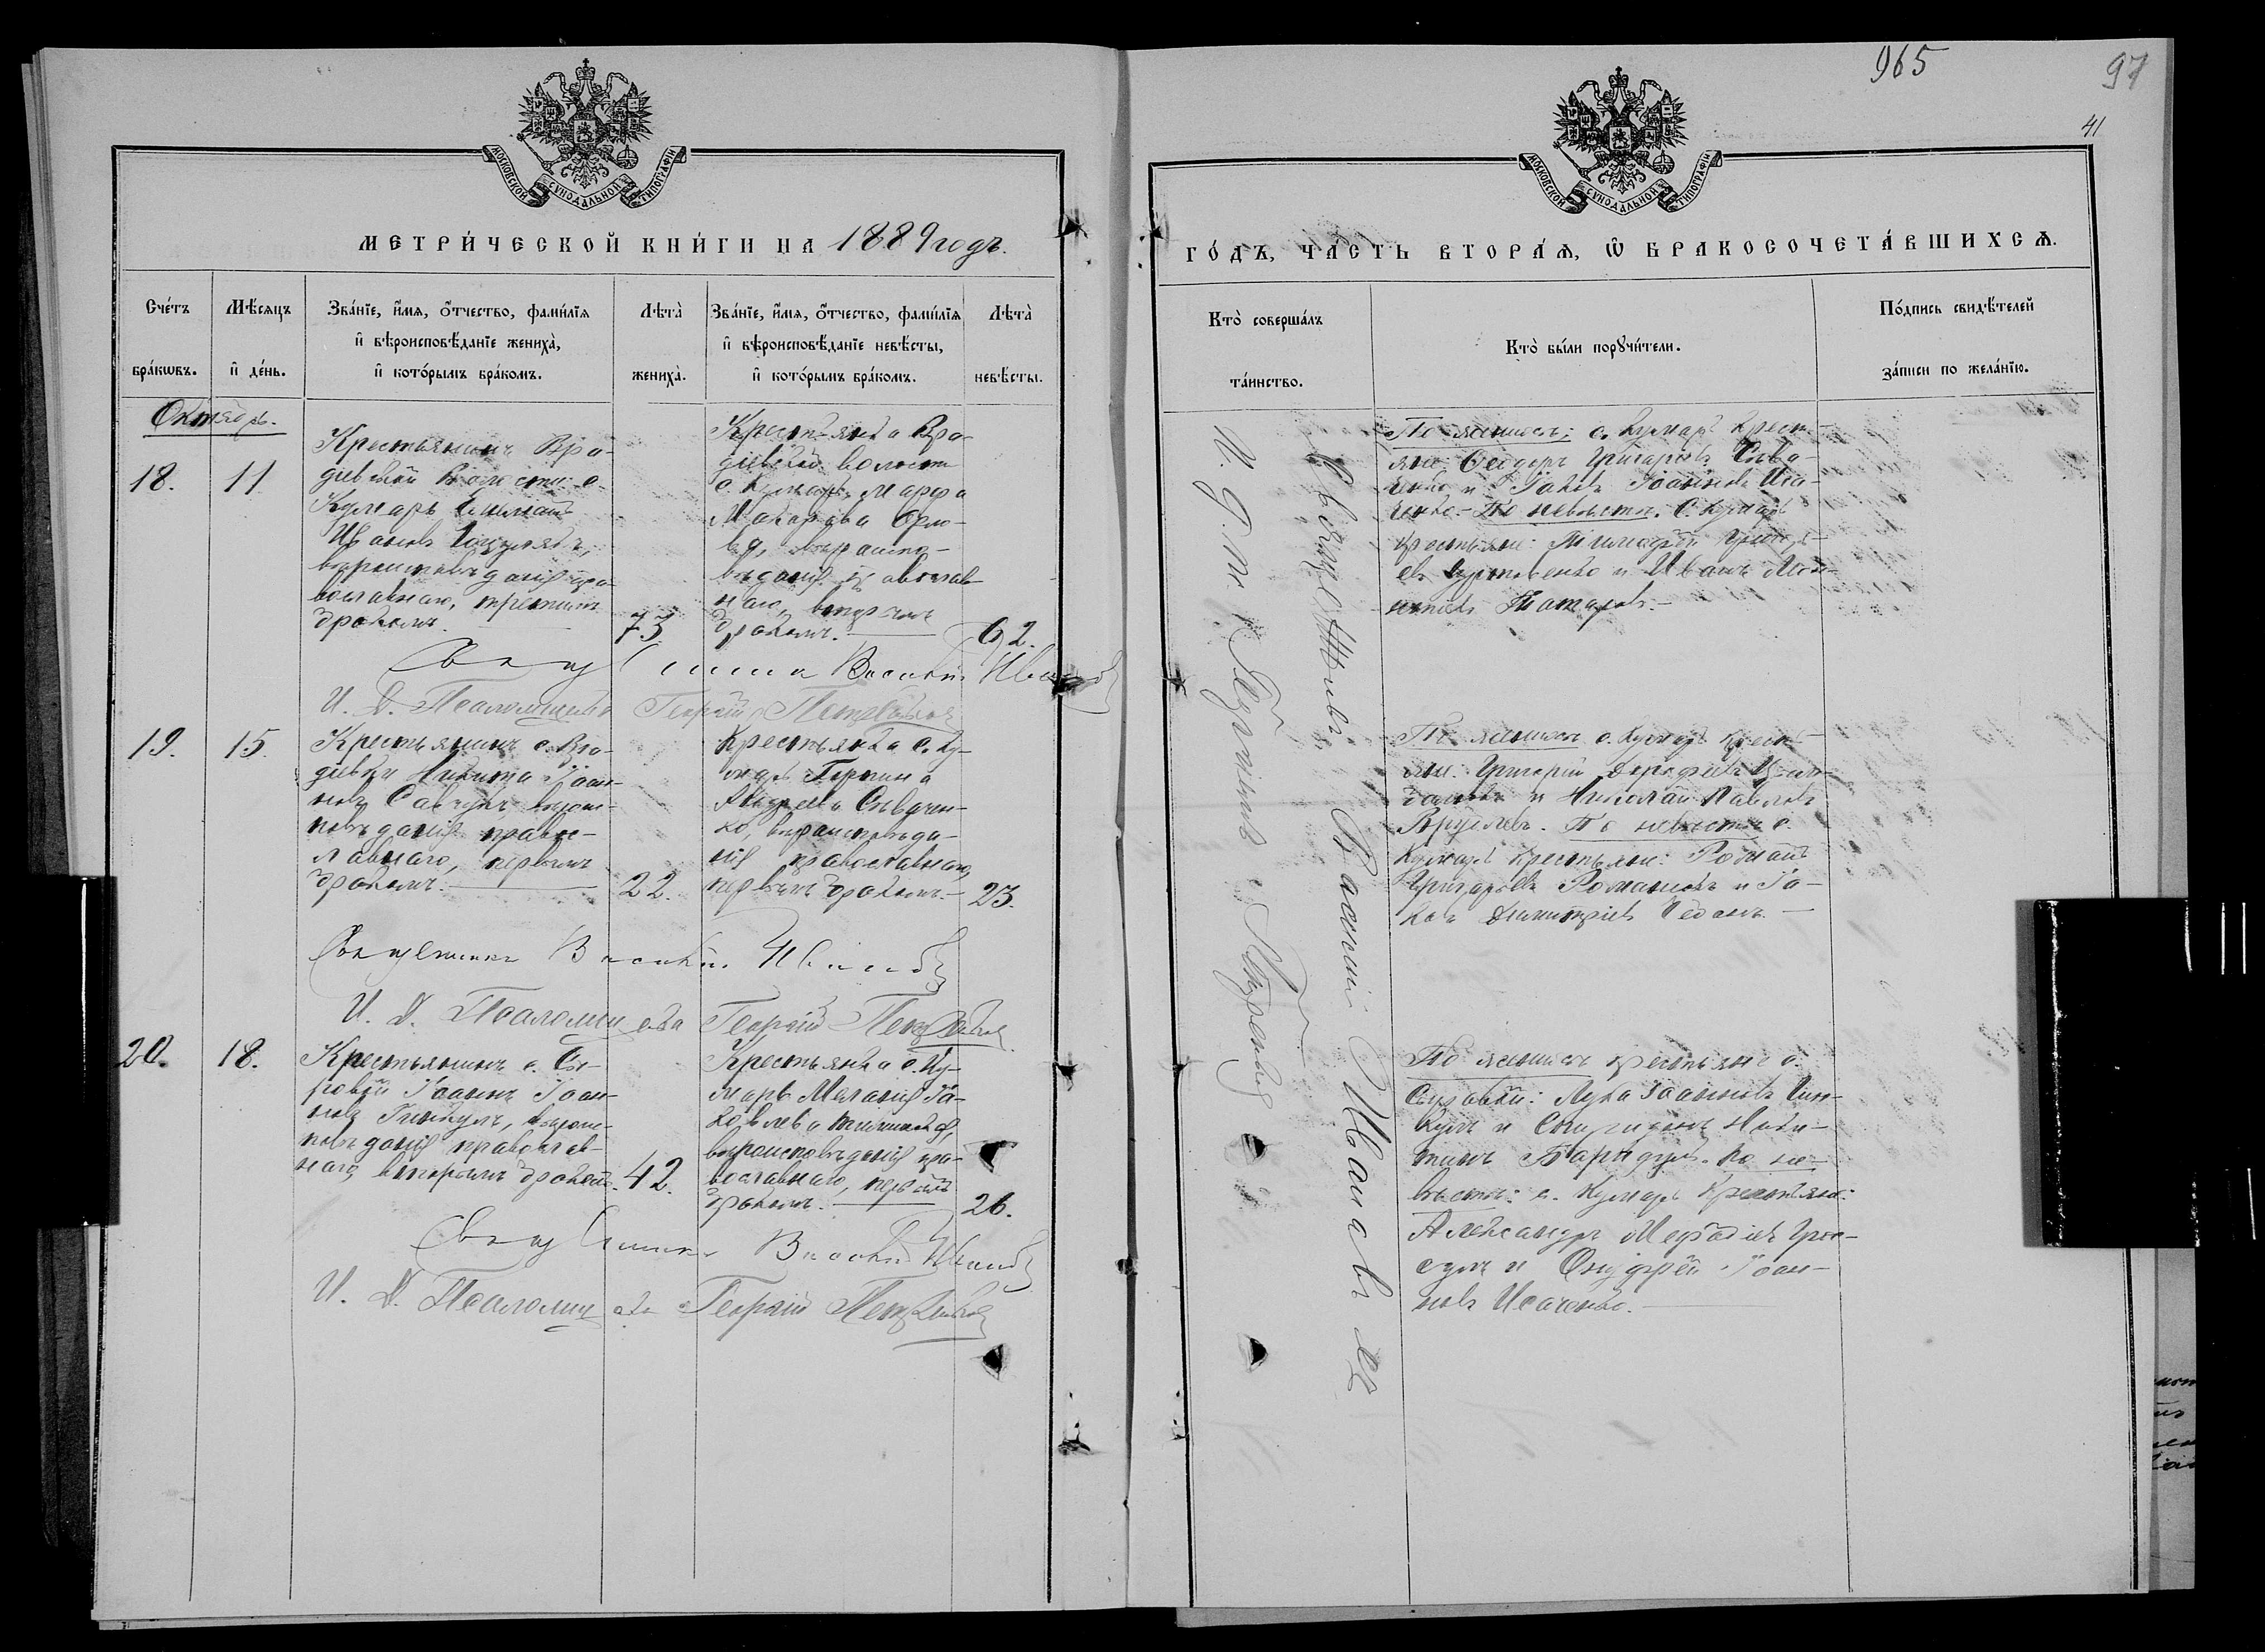 965
97
41
МОСКОВСКОЙ СѴНОДАЛЬНОЙ ТИПОГРАФІИ
МЕТРИ́ЧЕСКОЙ КНИ́ГИ НА 1889 годъ.
Сче́тъ бра́кѡвъ.
Мѣ́сяцъ и҆ де́нь.
Зва́нїе, и҆́мя, ѻ҆́тчество, фами́лїя
и҆ вѣроисповѣ́данїе жениха̀,
и҆ кото́рымъ бра́комъ.
Лѣта̀ жениха̀.
Зва́нїе, и҆́мя, ѻ҆́тчество, фами́лїя
и҆ вѣроисповѣ́данїе невѣ́сты,
и҆ кото́рымъ бра́комъ.
Лѣта̀ невѣ́сты.
Октябрь.
18.
11
Крестьянинъ Вра-
діевской Волости с.
Кумарь
Ивановъ
вѣроисповѣданія пра-
вославнаго, третьимъ
бракомъ.
73.
Крестьянка Вра-
діевской волости
с. Кумарь Марфа
Макарова Орло-
ва, вѣроиспо-
вѣданія православ-
наго, вторымъ
бракомъ.
62.
Священникъ Василій Ивановъ
И. Д. Псаломщика Георгій
19.
15.
Крестьянинъ с. Вра-
діевки Никита Іоан-
новъ Савчукъ, вѣрои-
повѣданія правос-
лавнаго, первымъ
бракомъ.
22.
Крестьянка с. Ку-
марь
Андреева Сывачен-
ко, вѣроисповѣда-
нія православнаго,
первымъ бракомъ.
23.
Священникъ Василій Ивановъ
И. Д. Псаломщика Георгій
20.
18.
Крестьянинъ с. Сы-
ровой Іоаннъ Іоан-
новъ Гинкулъ, вѣроис-
повѣданія православ-
наго, вторымъ бракомъ.
42.
Крестьянка с. Ку-
марь Меланія Іа-
ковлева
вѣроисповѣданія пра-
вославнаго, первымъ
бракомъ.
26.
Священникъ Василій Ивановъ
И. Д. Псаломщика Георгій
МОСКОВСКОЙ СѴНОДАЛЬНОЙ ТИПОГРАФІИ
ГО́ДЪ, ЧА́СТЬ ВТОРА́Ѧ, Ѡ҆ БРАКОСОЧЕТА́ВШИХСѦ.
Кто̀ соверша́лъ та́инство.
Кто̀ бы́ли порꙋчи́тели.
По́дпись свидѣ́телей за́писи по жела́нїю.
Священникъ Василій Ивановъ
По женихѣ: с. Кумарь крестья-
яне: Ѳеодоръ Григорьевъ Сыва-
ченко и Іаковъ Іоанновъ Иса-
ченко. По невѣстѣ: с. Кумарь
крестьяне: Тимоѳей
и Иванъ
Татаровъ.
По женихѣ с. Кумарь крестья-
не: Григорій
и Николай Павловъ
По невѣстѣ с.
Кумарь крестьяне: Романъ
Григорьевъ Романюкъ и Іа-
ковъ Димитріевъ
По женихѣ крестьяне с.
Сыровой: Лука Іоанновъ Гин-
кулъ и Спиридонъ Ники-
тинъ По не-
вѣстѣ: с. Кумарь крестьяне:
Александръ Меѳодіевъ Грос-
сулъ и Онуфрій Іоан-
новъ Исаченко.